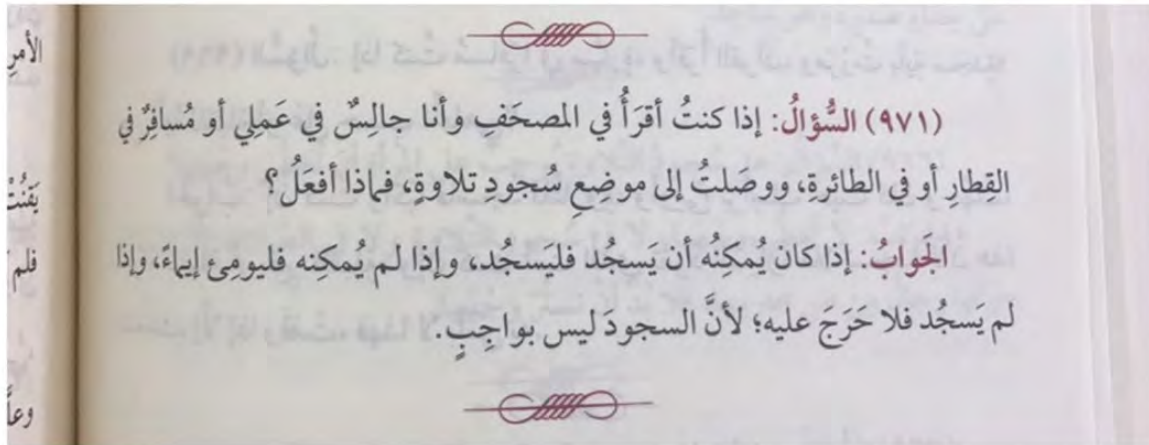 (٩٧١) السُّؤالُ: إذا كنتُ أقرَأُ في المصحَفِ وأنا جالِسٌ في عَمَلِي أو مُسافِرٌ في
القِطارِ أو في الطائرةِ، ووصَلتُ إلى موضِعِ سُجودِ تلاوةٍ، فماذا أفعَلُ؟
الجَوابُ: إذا كان يُمكِنُه أن يَسجُد فليَسجُد، وإذا لم يُمكِنه فليومِئ إيماءً، وإذا
لم يَسجُد فلا حَرَجَ عليه؛ لأنَّ السجودَ ليس بواجِبٍ.
الأمرِ
يَقنُتْ
فلم
وعلَّ